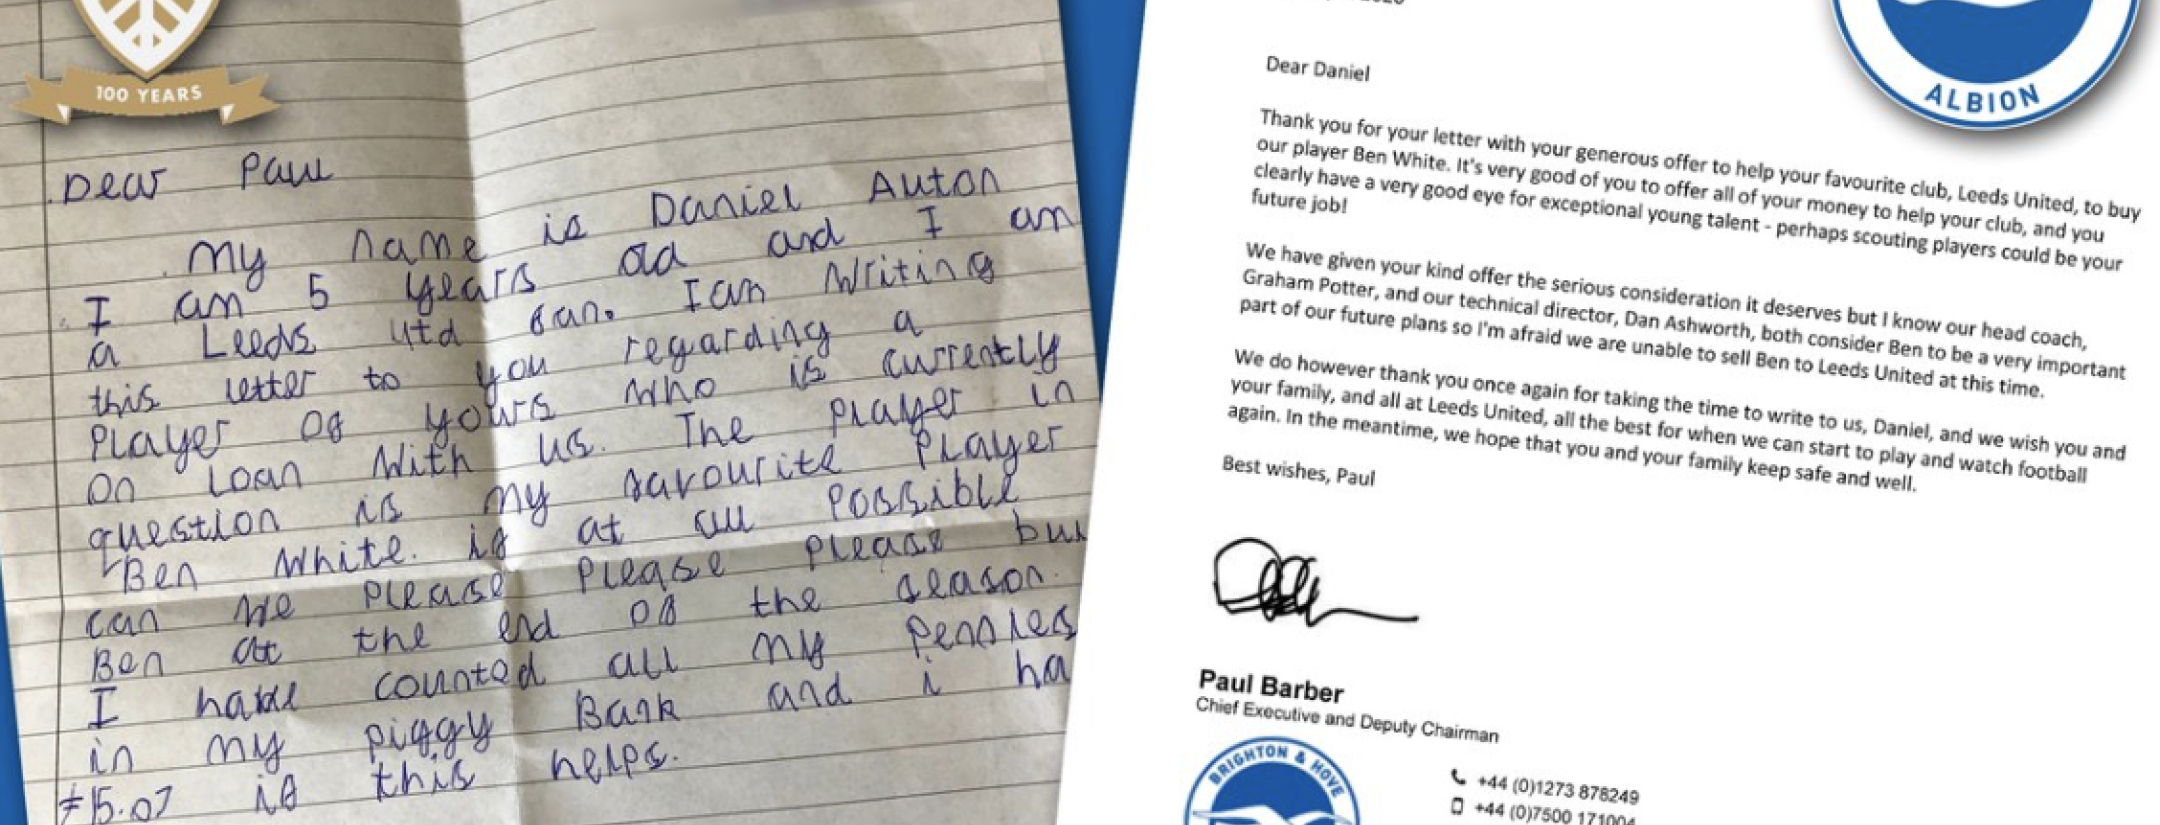 100 YEARS
Dear Paul
My name is Daniel Auton
I am 5 years old and I am
a Leeds utd fan. I am writing
this letter to you regarding a
player of yours who is currently
on loan with us. The player in
question is my favourite player
Ben White. if at all possible
can we please please please buy
Ben at the end of the season.
I have counted all my pennies
in my piggy Bank and i ha
£15.07 if this helps.
ALBION
Dear Daniel
Thank you for your letter with your generous offer to help your favourite club, Leeds United, to buy
our player Ben White. It's very good of you to offer all of your money to help your club, and you
clearly have a very good eye for exceptional young talent - perhaps scouting players could be your
future job!
We have given your kind offer the serious consideration it deserves but I know our head coach,
Graham Potter, and our technical director, Dan Ashworth, both consider Ben to be a very important
part of our future plans so I'm afraid we are unable to sell Ben to Leeds United at this time.
We do however thank you once again for taking the time to write to us, Daniel, and we wish you and
your family, and all at Leeds United, all the best for when we can start to play and watch football
again. In the meantime, we hope that you and your family keep safe and well.
Best wishes, Paul
Paul Barber
Chief Executive and Deputy Chairman
BRIGHTON & HOVE
+44 (0)1273 878249
+44 (0)7500 171004